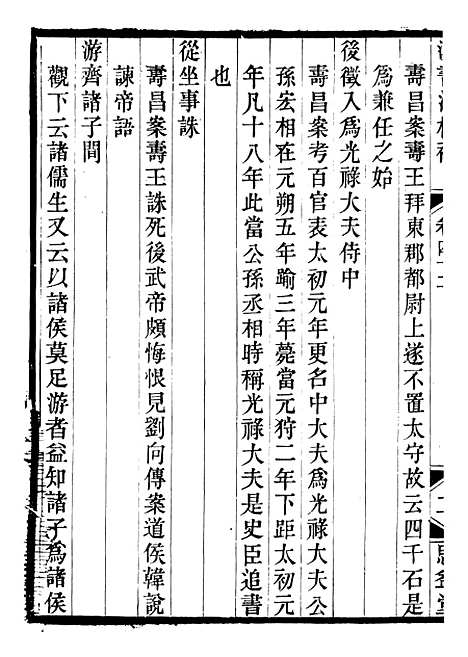 壽昌案壽王拜東郡都尉上遂不置太守故云四千石是
爲兼任之始
後徵入爲光祿大夫侍中
壽昌案考百官表太初元年更名中大夫爲光祿大夫公
孫宏相在元朔五年踰三年薨當元狩二年下距太初元
年凡十八年此當公孫丞相時稱光祿大夫是史臣追書
也
從坐事誅
壽昌案壽王誅死後武帝頗悔恨見劉向傳案道侯韓說
諫帝語
游齊諸子間
觀下云諸儒生又云以諸侯莫足游者益知諸子爲諸侯